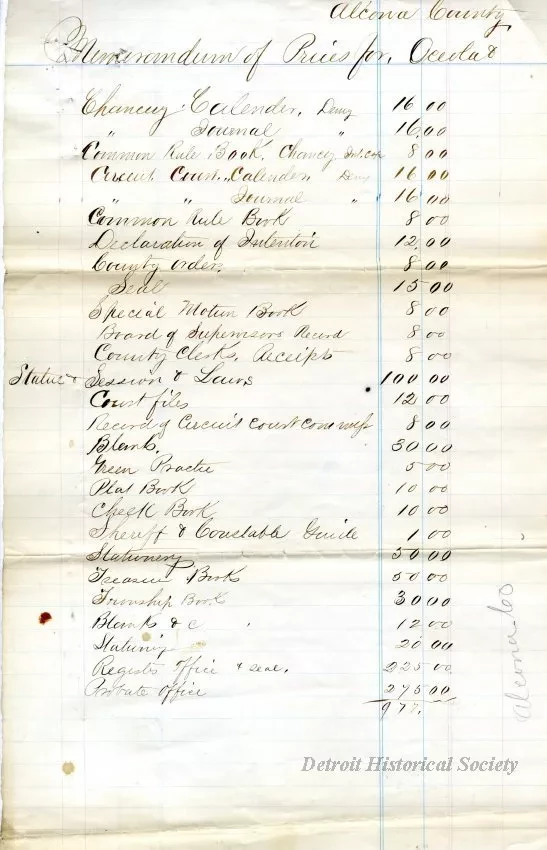 Alcona County
Memorandum of Prices for, Oceola &
Chancery Calender, Demy 16 00
" Journal " 16,00
Common Rule Book, Chancy 8 00
Circuit Court " Calender, Demy 16 00
" " Journal " 16 00
Common Rule Book 8 00
Declaration of Intention 12,00
County orders 8 00
Seal 15 00
Special Motion Book 8 00
Board of Supervisors Record 8 00
County Clerks, Receipts 8 00
Statue & Session & Laws 100 00
Court files 12 00
Record of Circuit Court 8 00
Blanks. 30 00
Green Practice 5 00
Plat Book 10 00
Check Book 10 00
Sheriff & Constable Guide 1 00
Stationery 50 00
Treasure Books 50 00
Township Book 30 00
Blanks & C 12 00
Stationery 20 00
Register office & seal. 225 00
Probate office 275 00
977.
Alcona Co
Detroit Historical Society